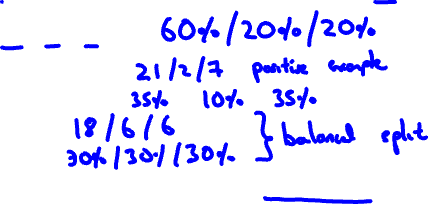 60%/20%/20%
21/2/7 positive example
35% 10% 35%
18/6/6
30%/30%/30% } balanced split